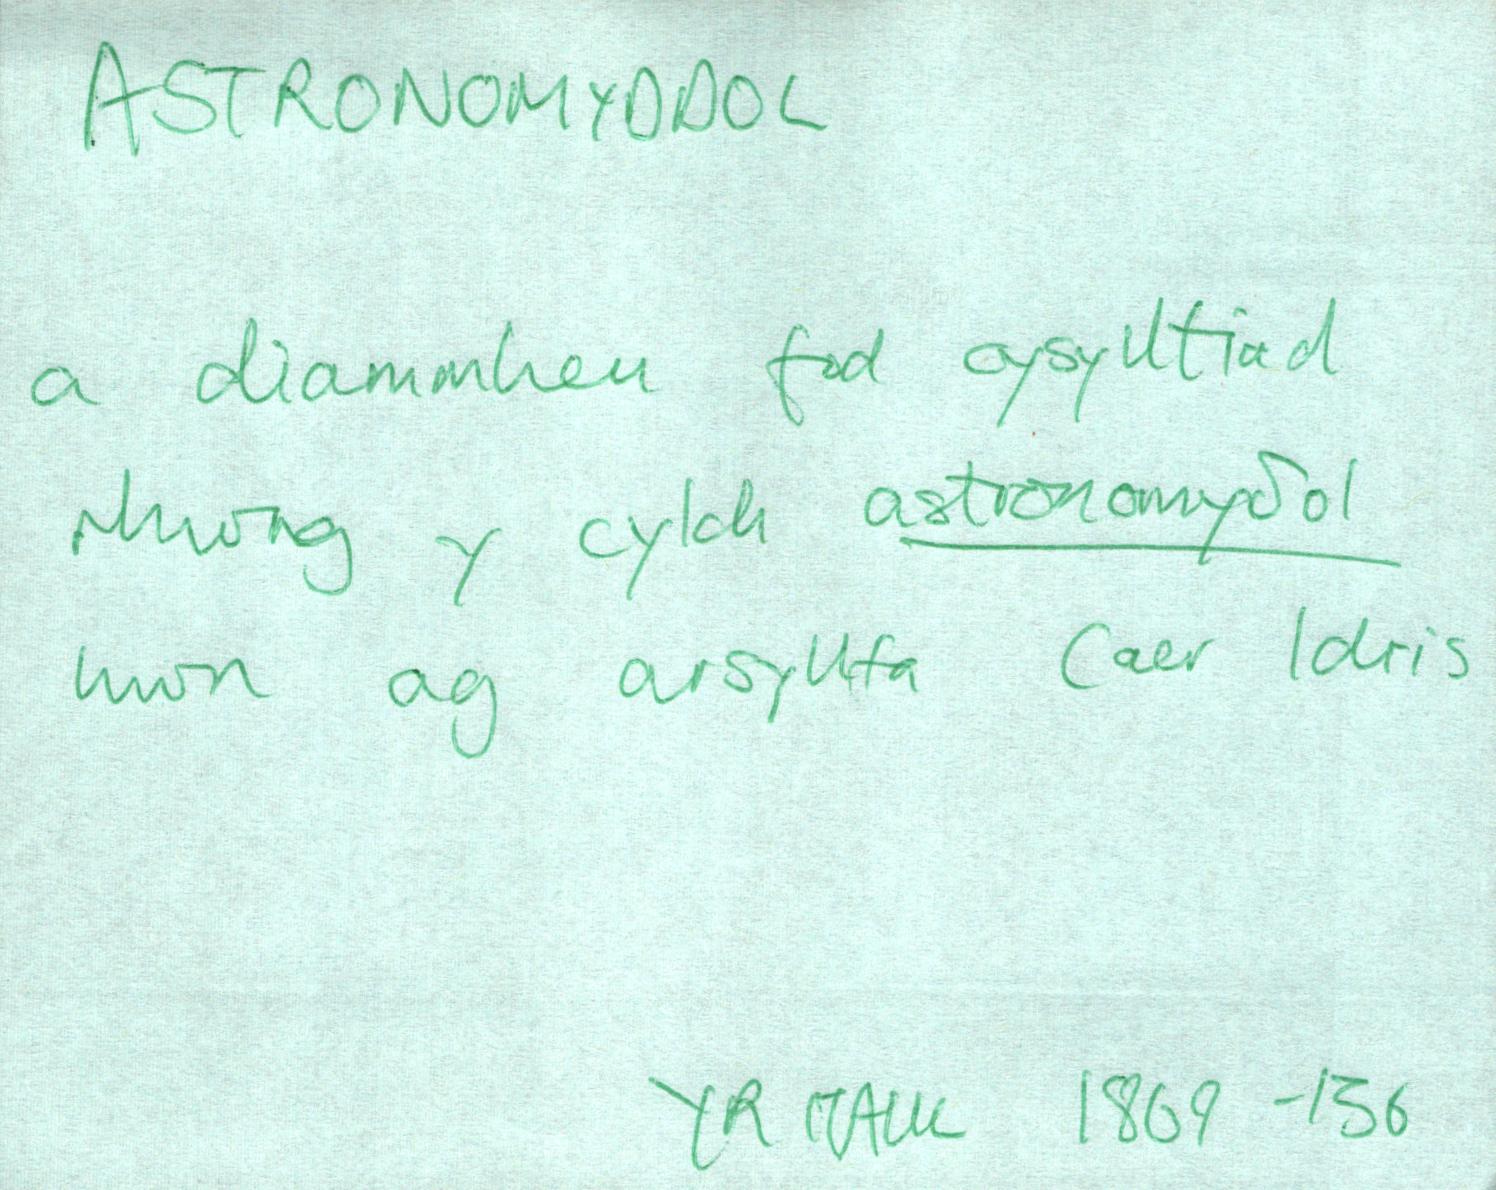 ASTRONOMYDDOL
a diammheu fod cysylltiad
rhwng y cylch astronomyδol
hwn ag arsyllfa Caer Idris
YR 1869 -136